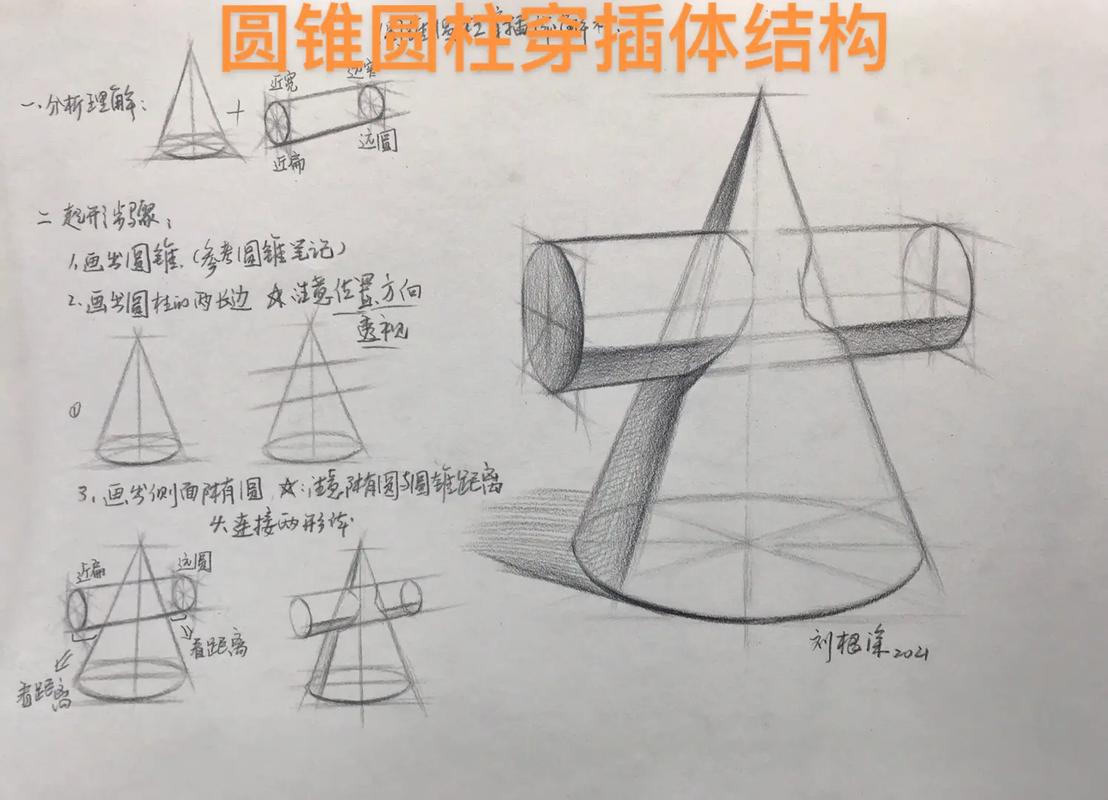 圆锥圆柱穿插体结构
一、分析理解：
近宽
远窄
近扁
远圆
二 起形步骤：
1.画出圆锥.（参考圆锥笔记）
2.画出圆柱的两长边 ☆注意位置方向
透视
①
3.画出侧面两个圆.☆：注意两个圆与圆锥距离
4.连接两形体
近扁
远圆
看距离
看距离
刘根深 2021